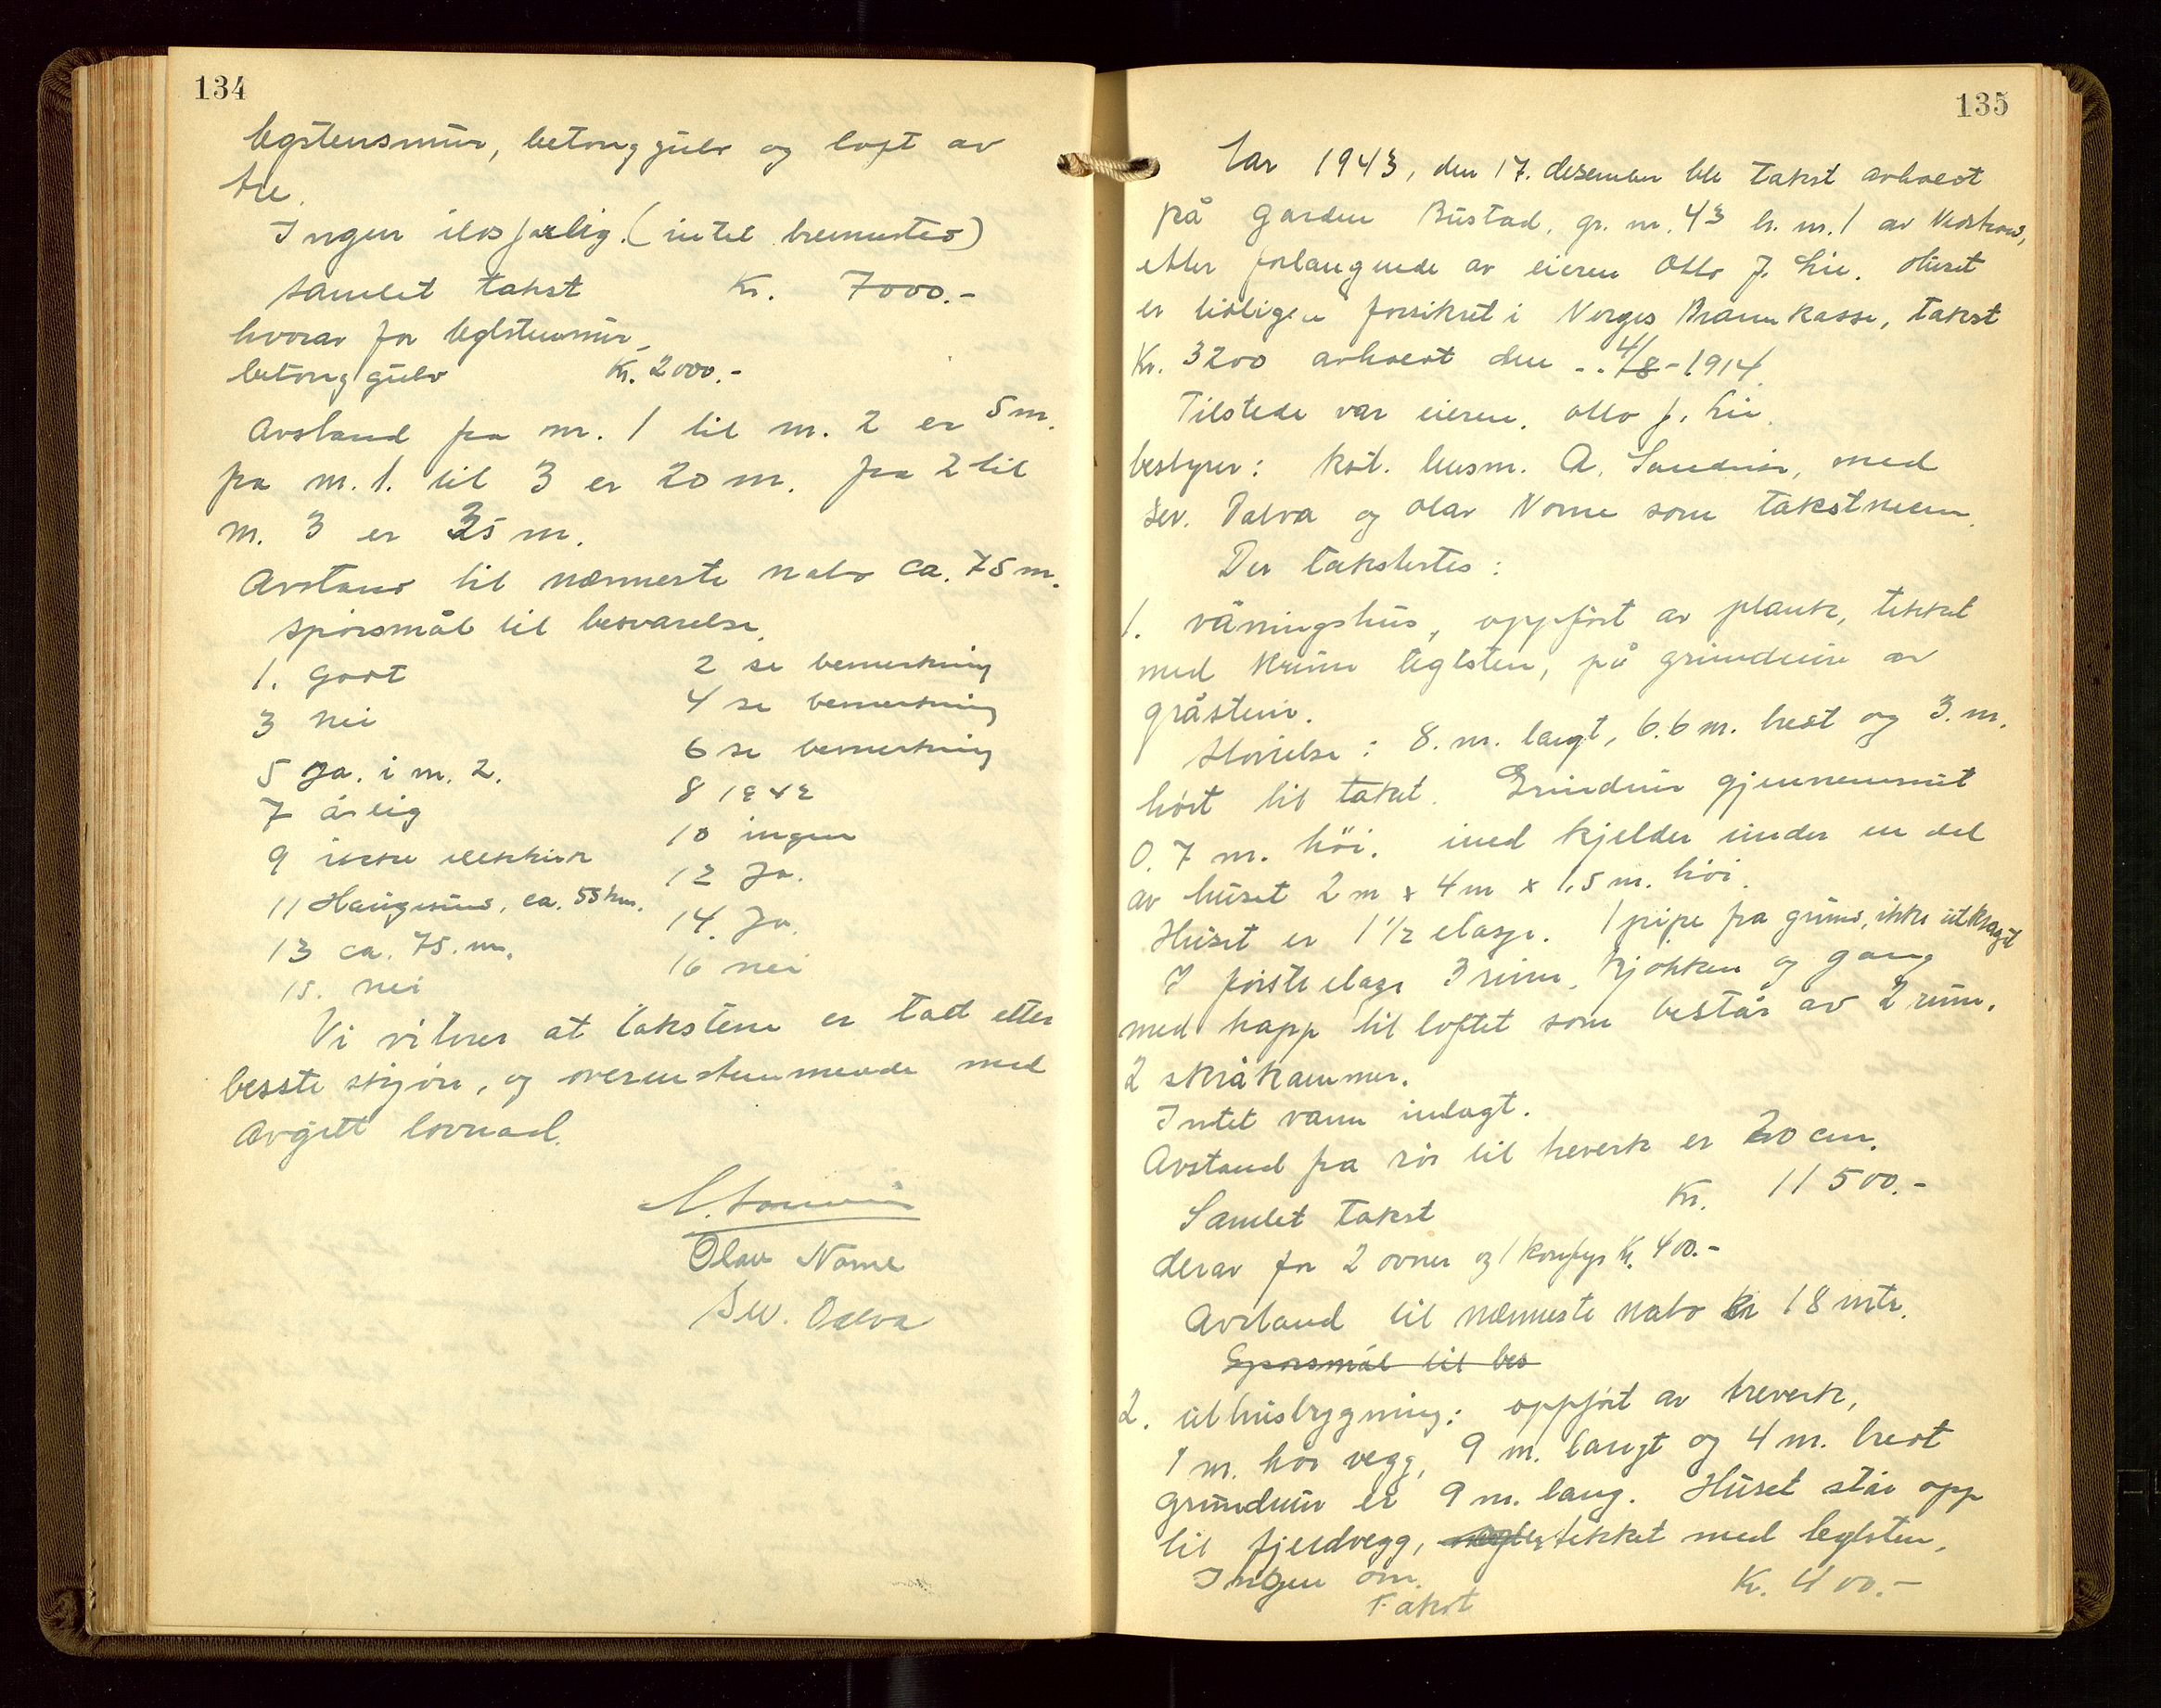 134
teglstensmur, betonggulv og loft av
tre.
Ingen ildsfarlig. (intet brennsted)
Samlet takst Kr. 7000.-
hvorav for teglstensmur,
betonggulv Kr. 2000.-
Avstand fra nr. 1 til nr. 2 er 5 m.
fra nr. 1. til 3 er 20 m. fra 2 til
nr. 3 er 35 m.
Avstand til nærmeste nabo ca. 75 m.
Spørsmål til besvarelse.
1. godt 2 se bemerkning
3 nei 4 se bemerkning
5 Ja. i nr. 2. 6 se bemerkning
7 årlig 8 1942
9 ikke elektrisk 10 ingen
11 Haugesund, ca. 55 km. 12 Ja.
13 ca. 75. m. 14. Ja.
15. nei 16 nei
Vi vitner at taksten er tatt etter
besste skjøn, og overenstemmende med
avgitt lovnad.
Olav Nome
Sev. Dalva
135
År 1943, den 17. desember ble takst avholdt
på garden Bustad, gr. nr. 43 br. nr. 1 av Vedstrand,
etter forlangende av eieren Otto J. Lie. Huset
er tidligere forsikret i Norges Brannkasse, takst
Kr. 3200 avholdt den .. 4/8-1914.
Tilstede var eieren. Otto J. Lie.
bestyrer: kst. lensm. A. , med
Sev. Dalva og Olav Nome som takstmenn.
Der takstertes:
1. våningshus, oppført av plank, tekket
med krum teglsten, på grunnmur av
gråstein.
Størrelse: 8. m. langt, 6.6 m. bredt og 3. m.
høit til taket. Grunnmur gjennemsnit
0.7 m. höi. med kjelder under en del
av huset 2 m x 4 m x 1,5 m. höi.
Huset er 1 1/2 etasje. 1 pipe fra grund, ikke utkraget
I første etage 3 rum, kjøkken og gang
med trapp til loftet som består av 2 rum.
2 skråkammer.
Intet vann indlagt.
Avstand fra rör til treverk er 20 cm.
Samlet takst Kr. 11500.-
derav for 2 ovner og 1 komfyr Kr. 400.-
Avstand til nærmeste nabo er 18 mtr.
Spørsmål til bes
2. uthusbygning: oppført av treverk,
1 m. höi vegg, 9 m. langt og 4 m. bredt
grunnmur er 9 m. lang. Huset står opp
til fjeldvegg, tekket med teglsten.
Ingen om.
Takst Kr. 400.-